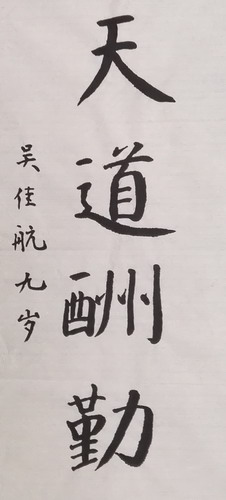 天道酬勤
吴佳航九岁